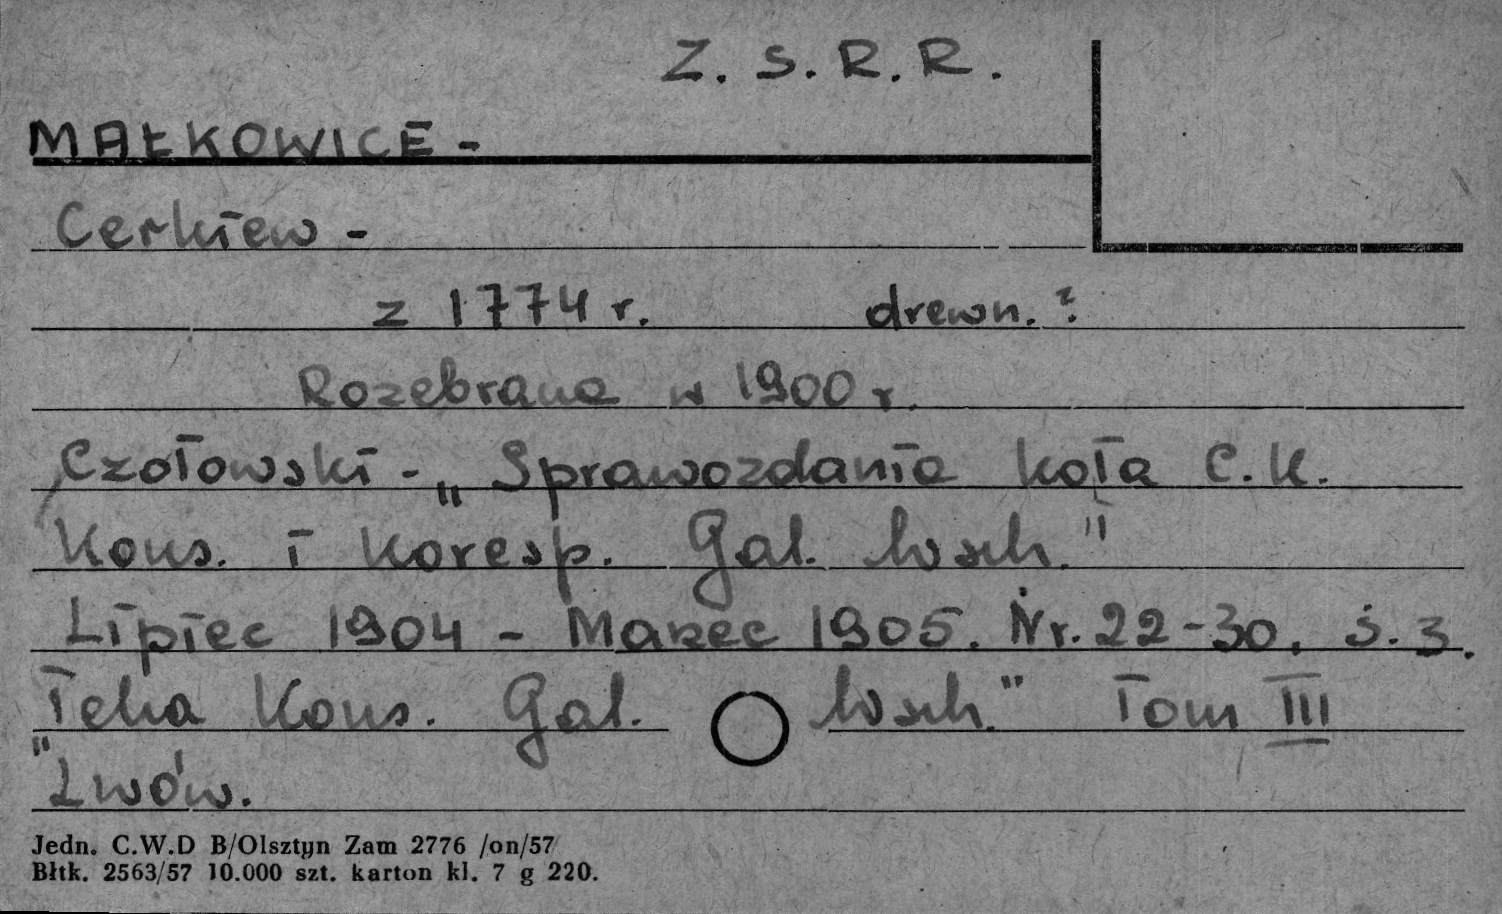 Z. S. R. R.
MAŁKOWICE -
Cerkiew -
z 1774 r. drewn. ?
Rozebrana w 1900 r.
Czołowski - „Sprawozdania koła C. K.
Kons. i Koresp. Gal. Wsch."
Lipiec 1904 - Marzec 1905. Nr. 22-30. s. 3.
„Teka Kons. Gal. Wsch." Tom III
Lwów.
Jedn. C.W.D B/Olsztyn Zam 2776 /on/57
Błtk. 2563/57 10.000 szt. karton kl. 7 g 220.